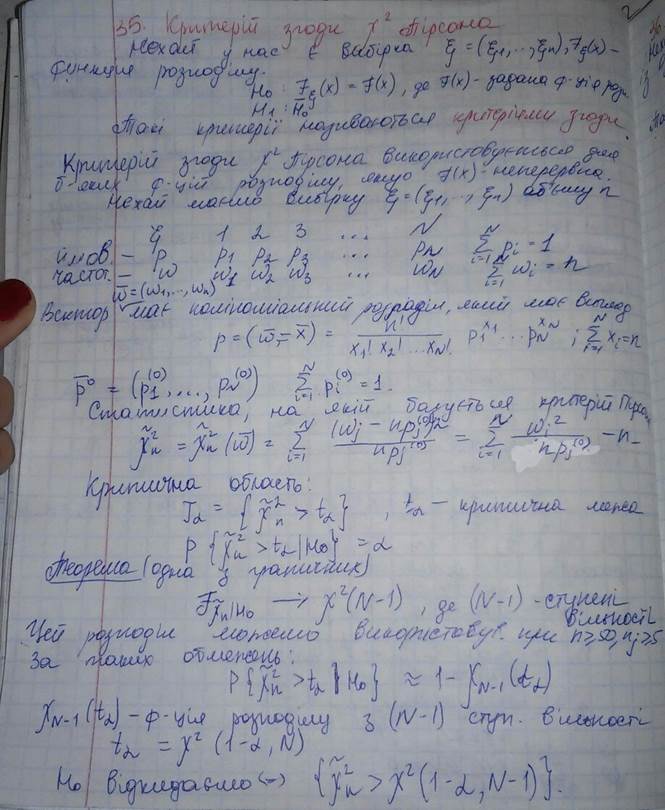 2
35. Критерій згоди χ² Пірсона
Нехай у нас є вибірка ξ = (ξ₁,...,ξₙ), F_ξ(x) –
функція розподілу.
H₀ : F_ξ(x) = F(x), де F(x) - задана ф-ція розп.
H₁ : H̄₀
Такі критерії називаються критеріями згоди
Критерій згоди χ² Пірсона використовується для
б-яких ф-цій розподілу, якщо F(x) - неперервна.
Нехай маємо вибірку ξ = (ξ₁,...,ξₙ) об'єму n
ξ 1 2 3 ... N
ймов. – p p₁ p₂ p₃ ... p_N ∑_{i=1}^{N} pᵢ = 1
частот. – w w₁ w₂ w₃ ... w_N ∑_{i=1}^{N} wᵢ = n
w̄ = (w₁,...,wₙ)
Вектор має поліноміальний розподіл, який має вигляд
p = (w̄ = x̄) = n! / (x₁! x₂! ... x_N!) p₁^{x₁} ... p_N^{x_N} ; ∑_{i=1}^{N} xᵢ = n
p̄⁰ = (p₁⁽⁰⁾, ..., p_N⁽⁰⁾) ∑_{i=1}^{N} pᵢ⁽⁰⁾ = 1.
Статистика, на якій базується критерій Пірсона
χ̃²ₙ = χ̃²ₙ(w̄) = ∑_{i=1}^{N} (wⱼ – npⱼ⁽⁰⁾)² / npⱼ⁽⁰⁾ = ∑_{i=1}^{N} wⱼ² / npⱼ⁽⁰⁾ – n
Критична область:
T_α = { χ̃²ₙ > t_α } , t_α – критична межа
P { χ̃²ₙ > t_α | H₀ } = α
Теорема (одна з граничних)
F_{χ̃ₙ|H₀} → χ²(N-1) , де (N-1) - ступені
вільності
Цей розподіл можемо використовув. при n ≥ 50, nⱼ ≥ 5
За таких обмежень:
P { χ̃²ₙ > t_α | H₀ } ≈ 1 – χ_{N-1}(t_α)
χ_{N-1}(t_α) – ф-ція розподілу з (N-1) ступ. вільності
t_α = χ²(1-α, N)
H₀ відкидаємо ⇔ { χ̃²ₙ > χ²(1-α, N-1) }.